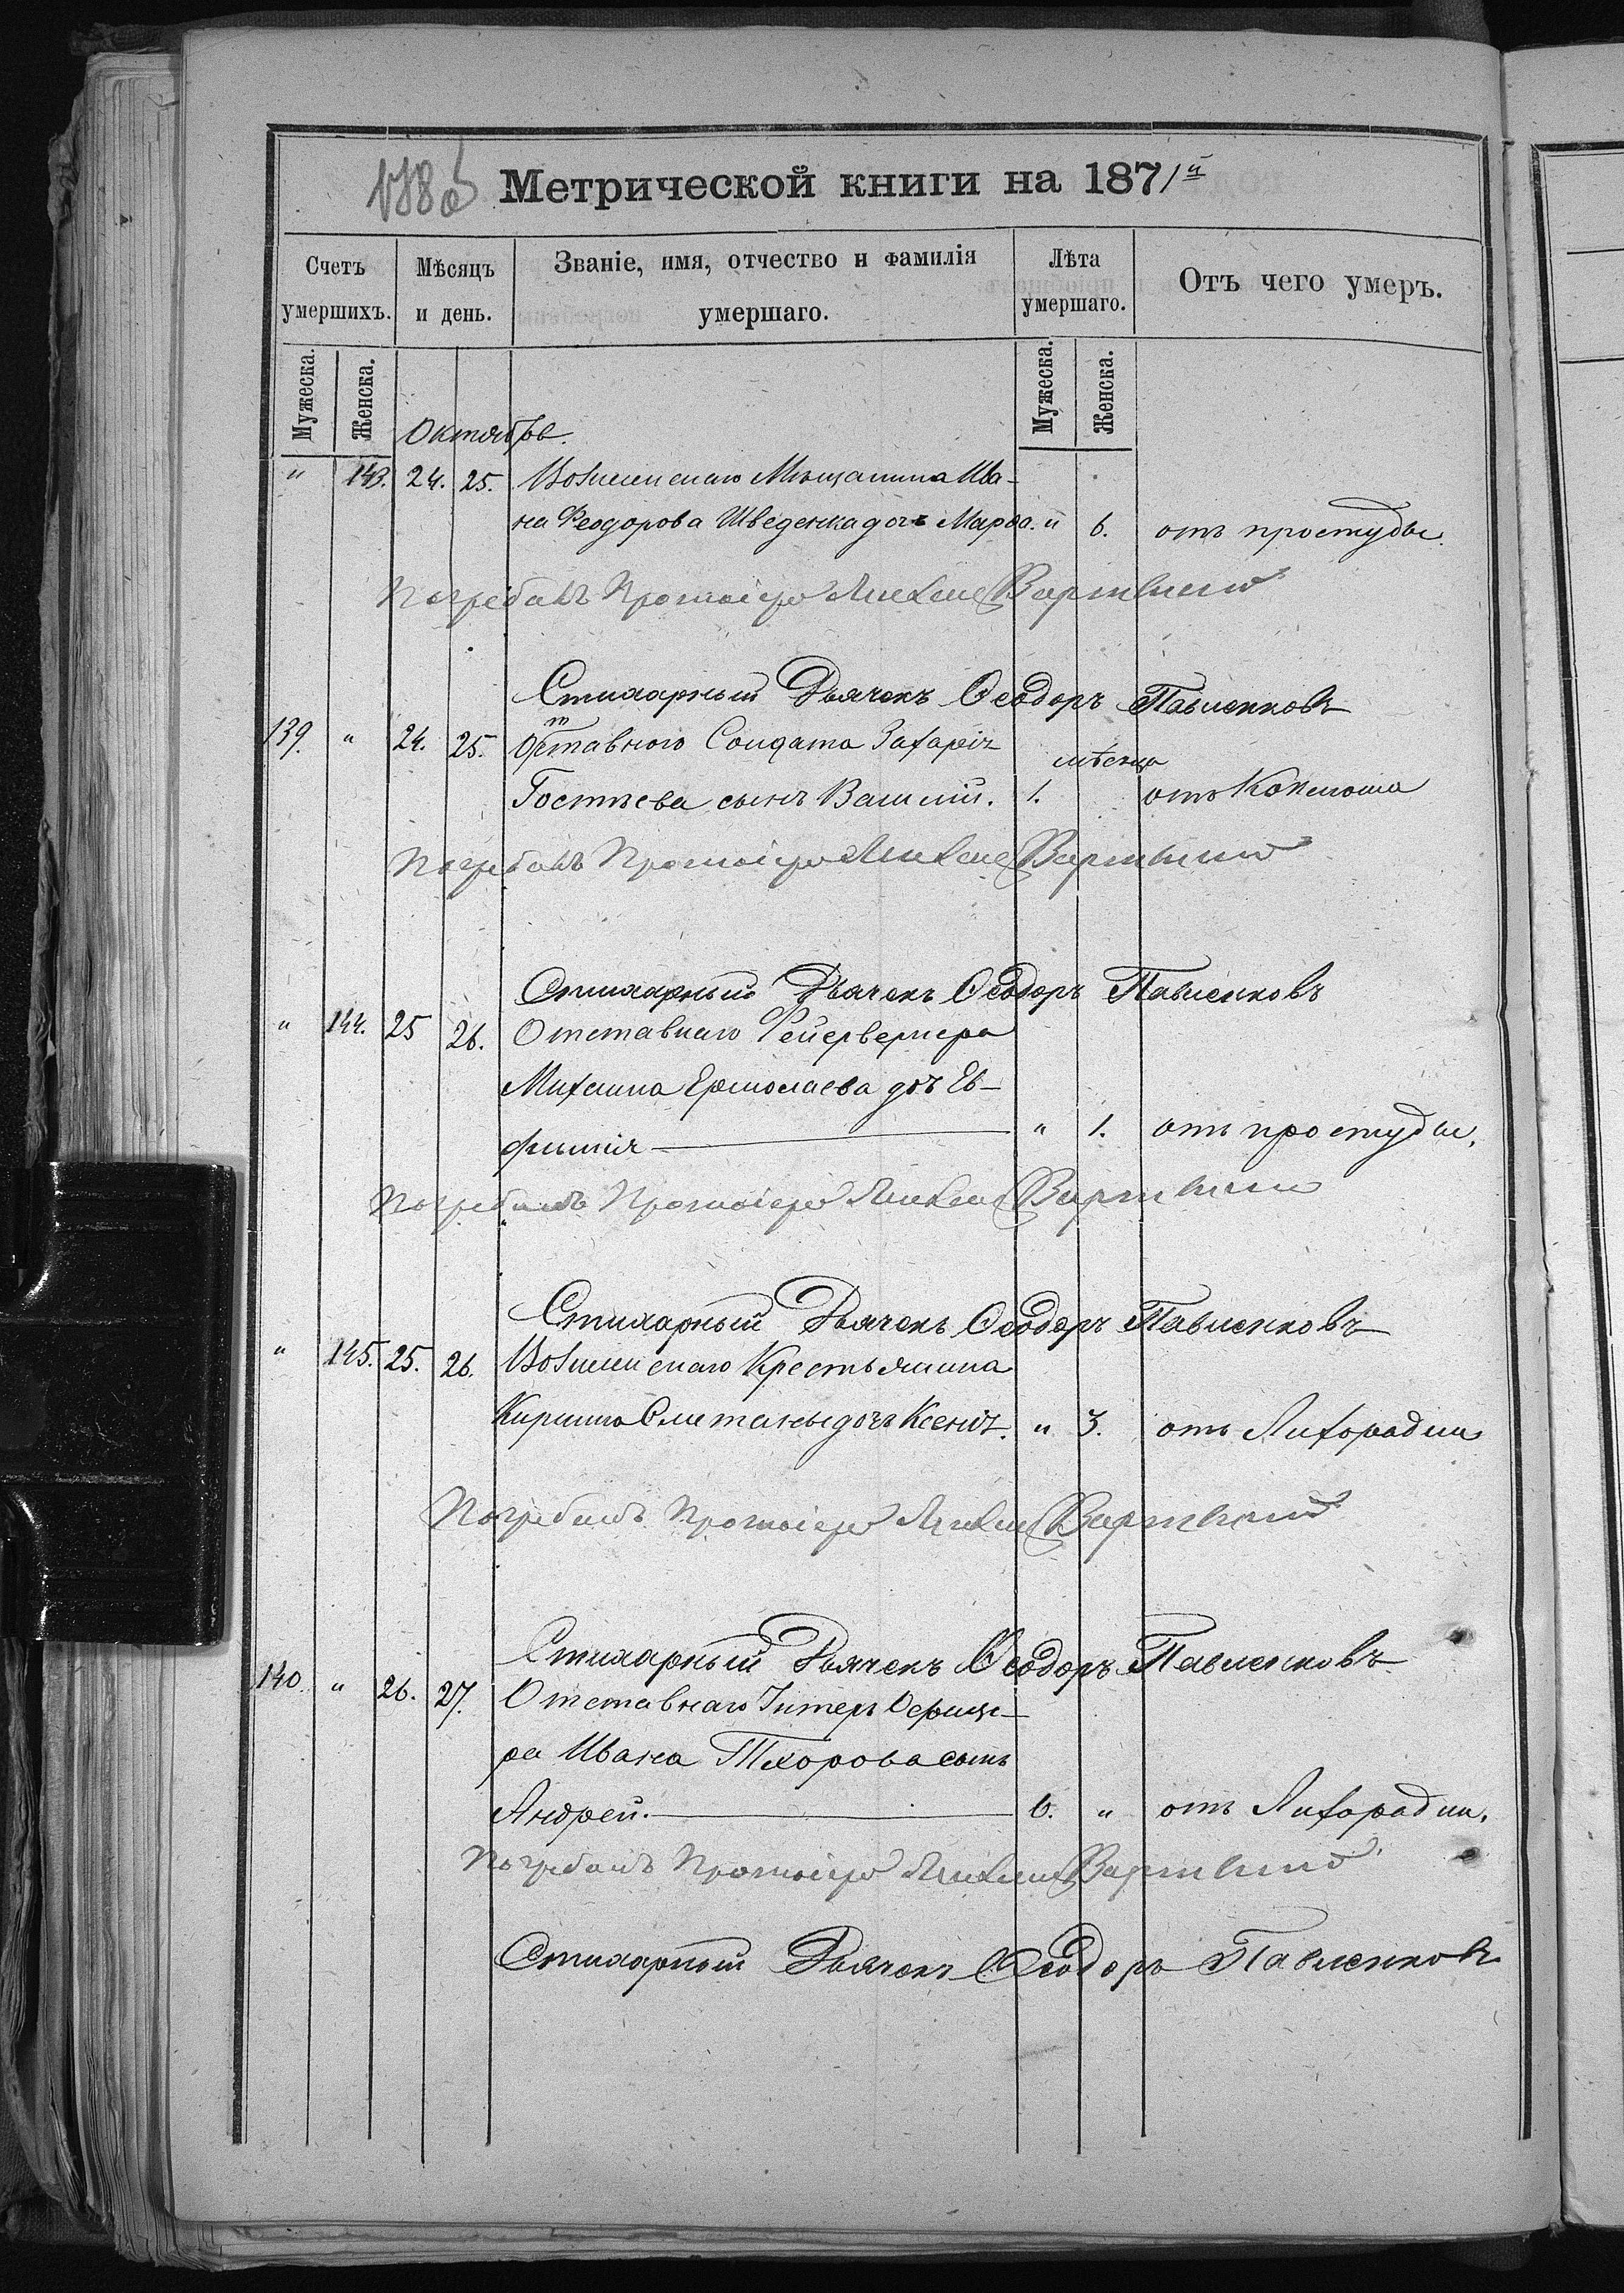 Метрической книги на 1871й
Счетъ умершихъ. Мѣсяцъ и день. Званіе, имя, отчество и фамилія умершаго. Лѣта умершаго. Отъ чего умеръ.
Мужеска. Женска. Мужеска. Женска.
Октябрь.
" 143. 24. 25. Вознесенскаго Мѣщанина Ива-
на Феодорова Шведенка дочь Марѳа. " 6. отъ простуды.
Погребалъ Протоіерей
Стихарный Дьячекъ Ѳеодоръ Павленковъ
139. " 24. 25. Отставного Солдата Захарія
мѣсяца
Гостѣева сынъ Василій. 1. отъ Коклюша
Погребалъ Протоіерей
Стихарный Дьячекъ Ѳеодоръ Павленковъ
" 144. 25 26. Отставнаго Фейерверкера
Михаила Ермолаева дочь Ев-
фимія " 1. отъ простуды.
Погребалъ Протоіерей
Стихарный Дьячекъ Ѳеодоръ Павленковъ
" 145. 25. 26. Вознесенскаго Крестьянина
Кирилла Сметаны дочь Ксенія. " 3. отъ Лихорадки
Погребалъ Протоіерей
Стихарный Дьячекъ Ѳеодоръ Павленковъ
140. " 26. 27. Отставнаго Унтеръ Офице-
ра Ивана Тхорова сынъ
Андрей. 6. " отъ Лихорадки.
Погребалъ Протоіерей
Стихарный Дьячекъ Ѳеодоръ Павленковъ